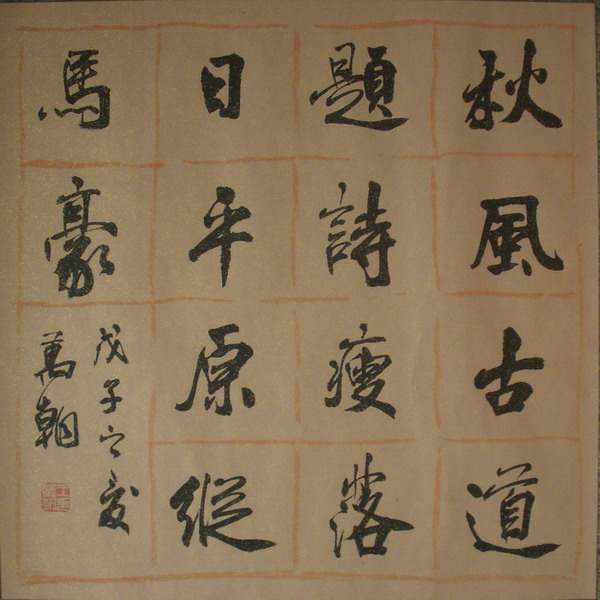 秋風古道
題詩瘦落
日平原縱
馬豪
戊子之夏
萬朝